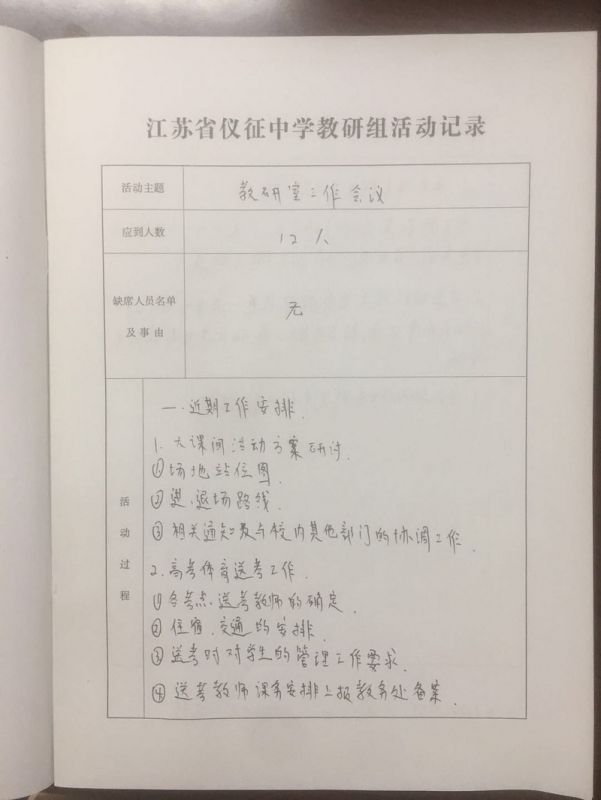 江苏省仪征中学教研组活动记录
活动主题 教研室工作会议
应到人数 12人
缺席人员名单
及事由
无
活动过程
一.近期工作安排.
1.大课间活动方案研讨.
①场地站位图.
②进.退场路线.
③相关通知及与校内其他部门的协调工作.
2.高考体育送考工作.
①各考点.送考教师的确定.
②住宿.交通的安排.
③送考时对学生的管理工作要求.
④送考教师课务安排上报教务处备案.